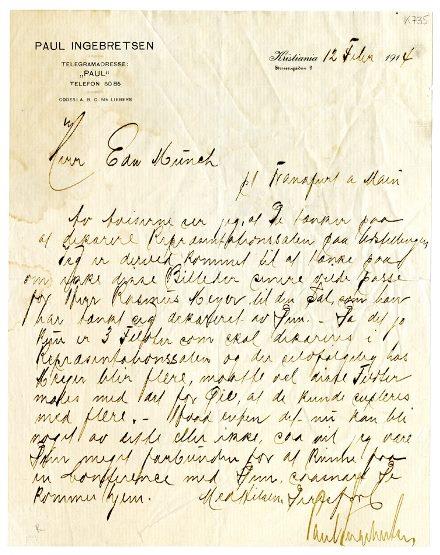 K 735
PAUL INGEBRETSEN
TELEGRAMADRESSE:
„PAUL"
TELEFON 5085
Kristiania 12 Febr 1914
Herr Edv Münch
pt Frankfurt a Main
Av aviserne ser jeg, at De tænker paa
at dekorere Repræsentationssalen paa Udstillingen,
jeg er derved kommet til at tænke paa
om ikke disse Billeder senere vilde passe
for Herr Rasmus Meyer til den Sal, som han
har tænkt sig dekoreret av Dem. - Da det jo
kun er 3 som skal dekoreres i
Repræsentationssalen og der hos
Meyer blir flere, maatte vel disse
males med det for Øie, at de kunde
med flere. - Hvad enten det nu kan bli
noget av dette eller ikke, saa vil jeg være
Dem meget forbunden for at kunne faa
en Conference med Dem, saasnart De
kommer hjem. Med Hilsen,
Paul Ingebretsen